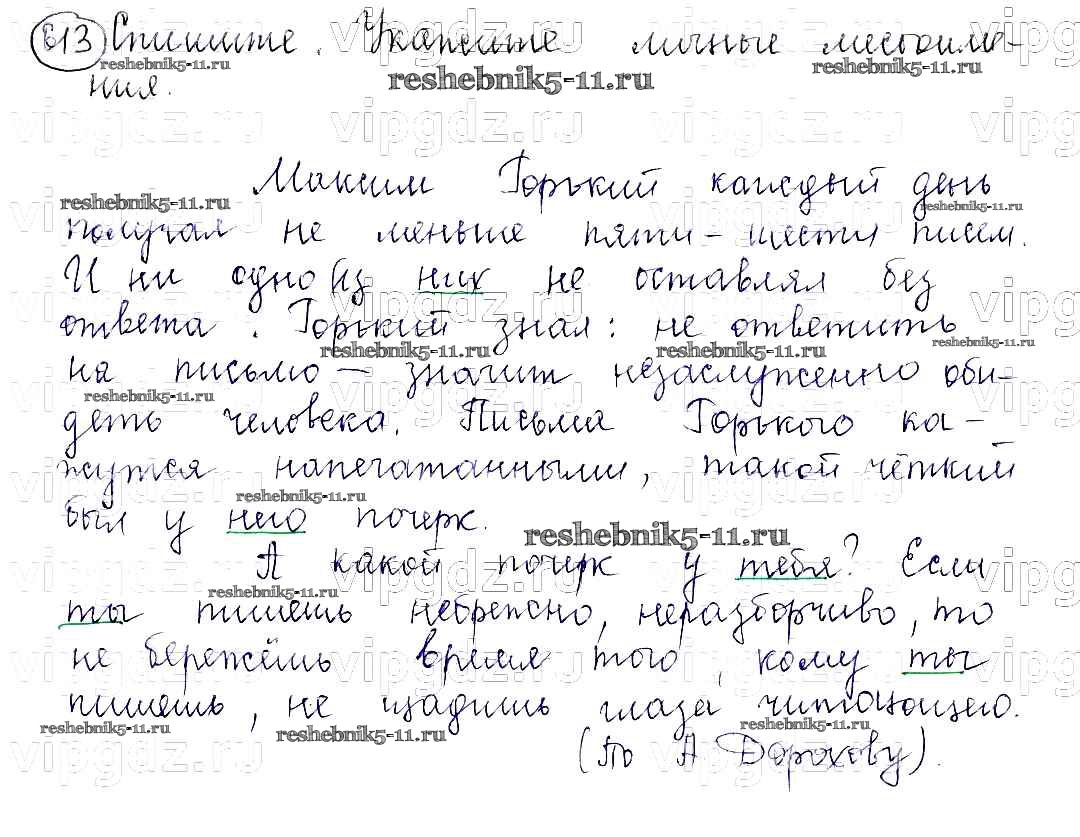 613 Спишите. Укажите личные местоиме-
ния.
Максим Горький каждый день
получал не меньше пяти-шести писем.
И ни одно из них не оставлял без
ответа. Горький знал: не ответить
на письмо — значит незаслуженно оби-
деть человека. Письма Горького ка-
жутся напечатанными, такой чёткий
был у него почерк.
А какой почерк у тебя? Если
ты пишешь небрежно, неразборчиво, то
не бережёшь время того, кому ты
пишешь, не щадишь глаза читающего.
(По А Дорохову).
reshebnik5-11.ru
vipgdz.ru